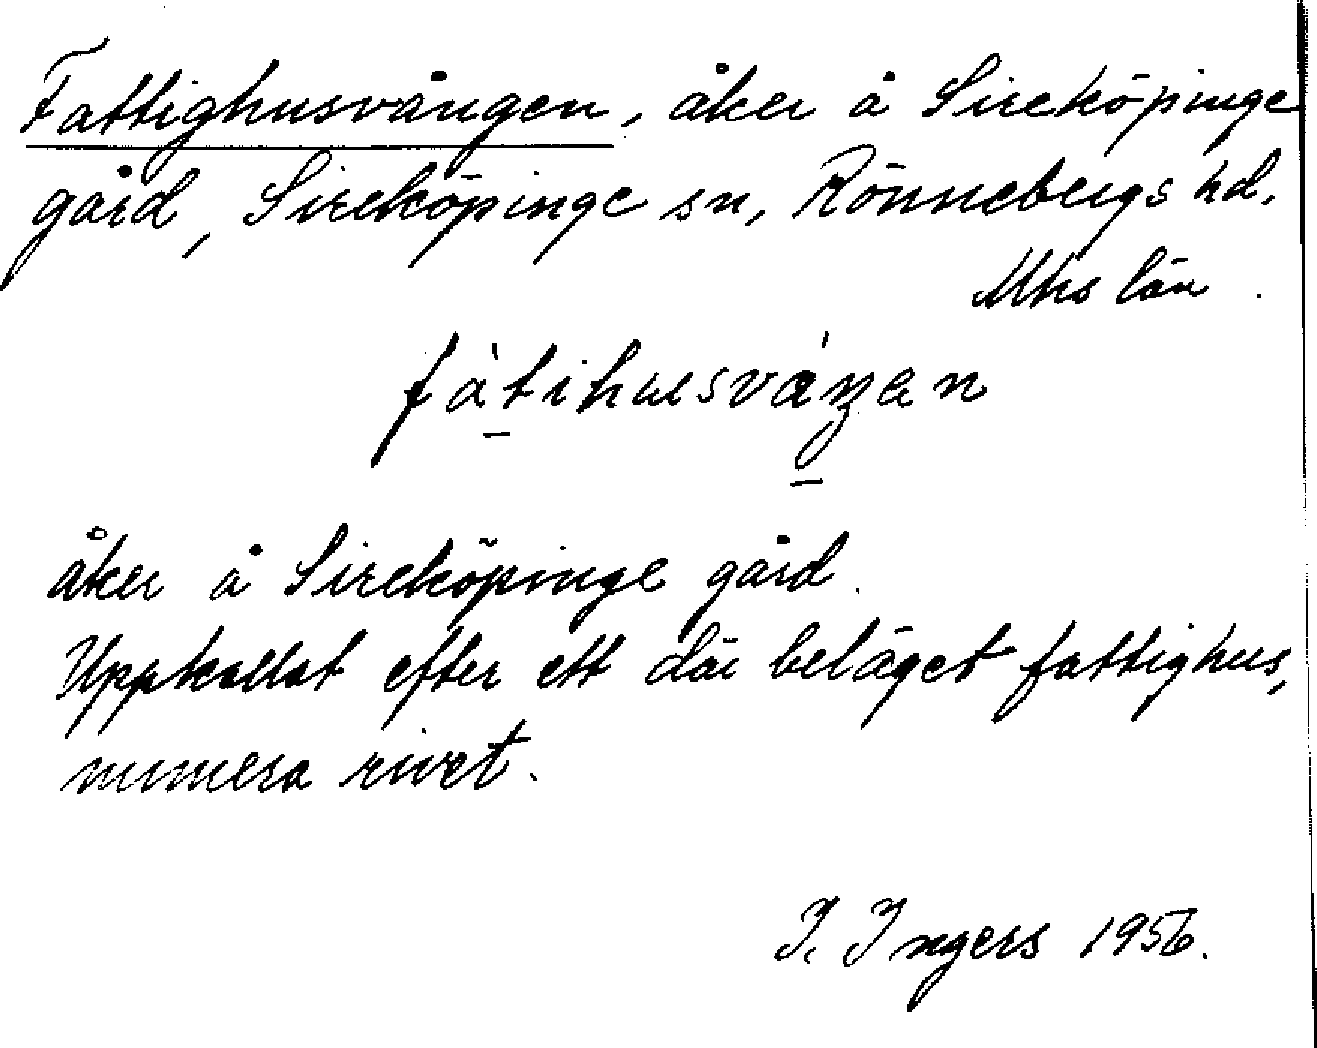 Fattighusvången, åker å Sireköpinge
gård, Sireköpinge sn, Rönnebergs hd.
Mhs län.
fàtihusváŋan
åker å Sireköpinge gård.
Uppkallat efter ett där beläget fattighus,
numera rivet.
I. Ingers 1956.